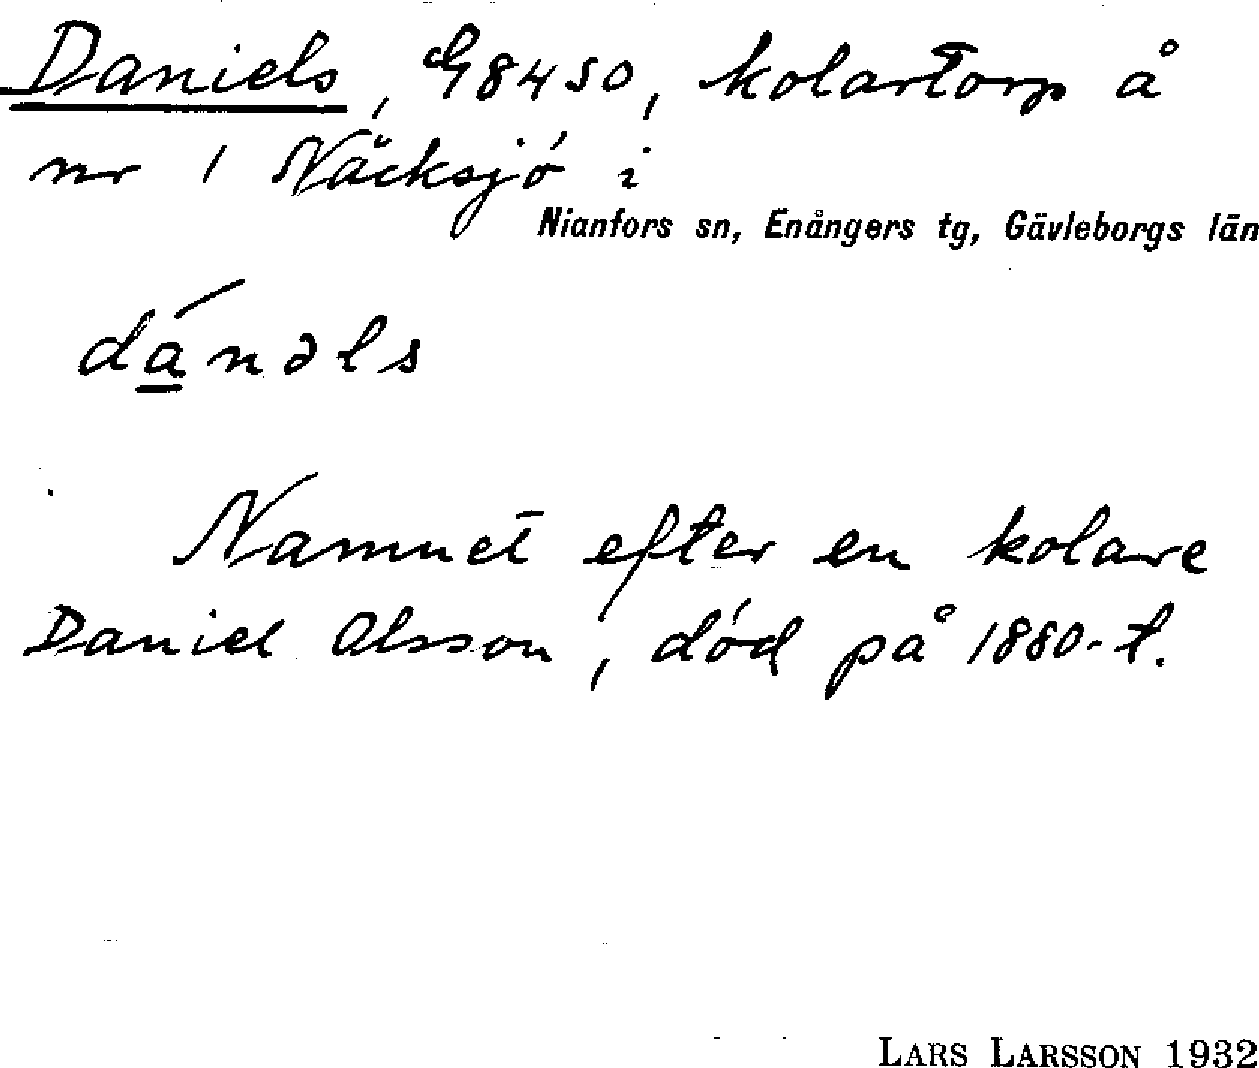 Daniels, G8450, kolartorp å
nr 1 Näcksjö i
Nianfors sn, Enångers tg, Gävleborgs län
dánəls
Namnet efter en kolare
Daniel Olsson, död på 1880-t.
LARS LARSSON 1932